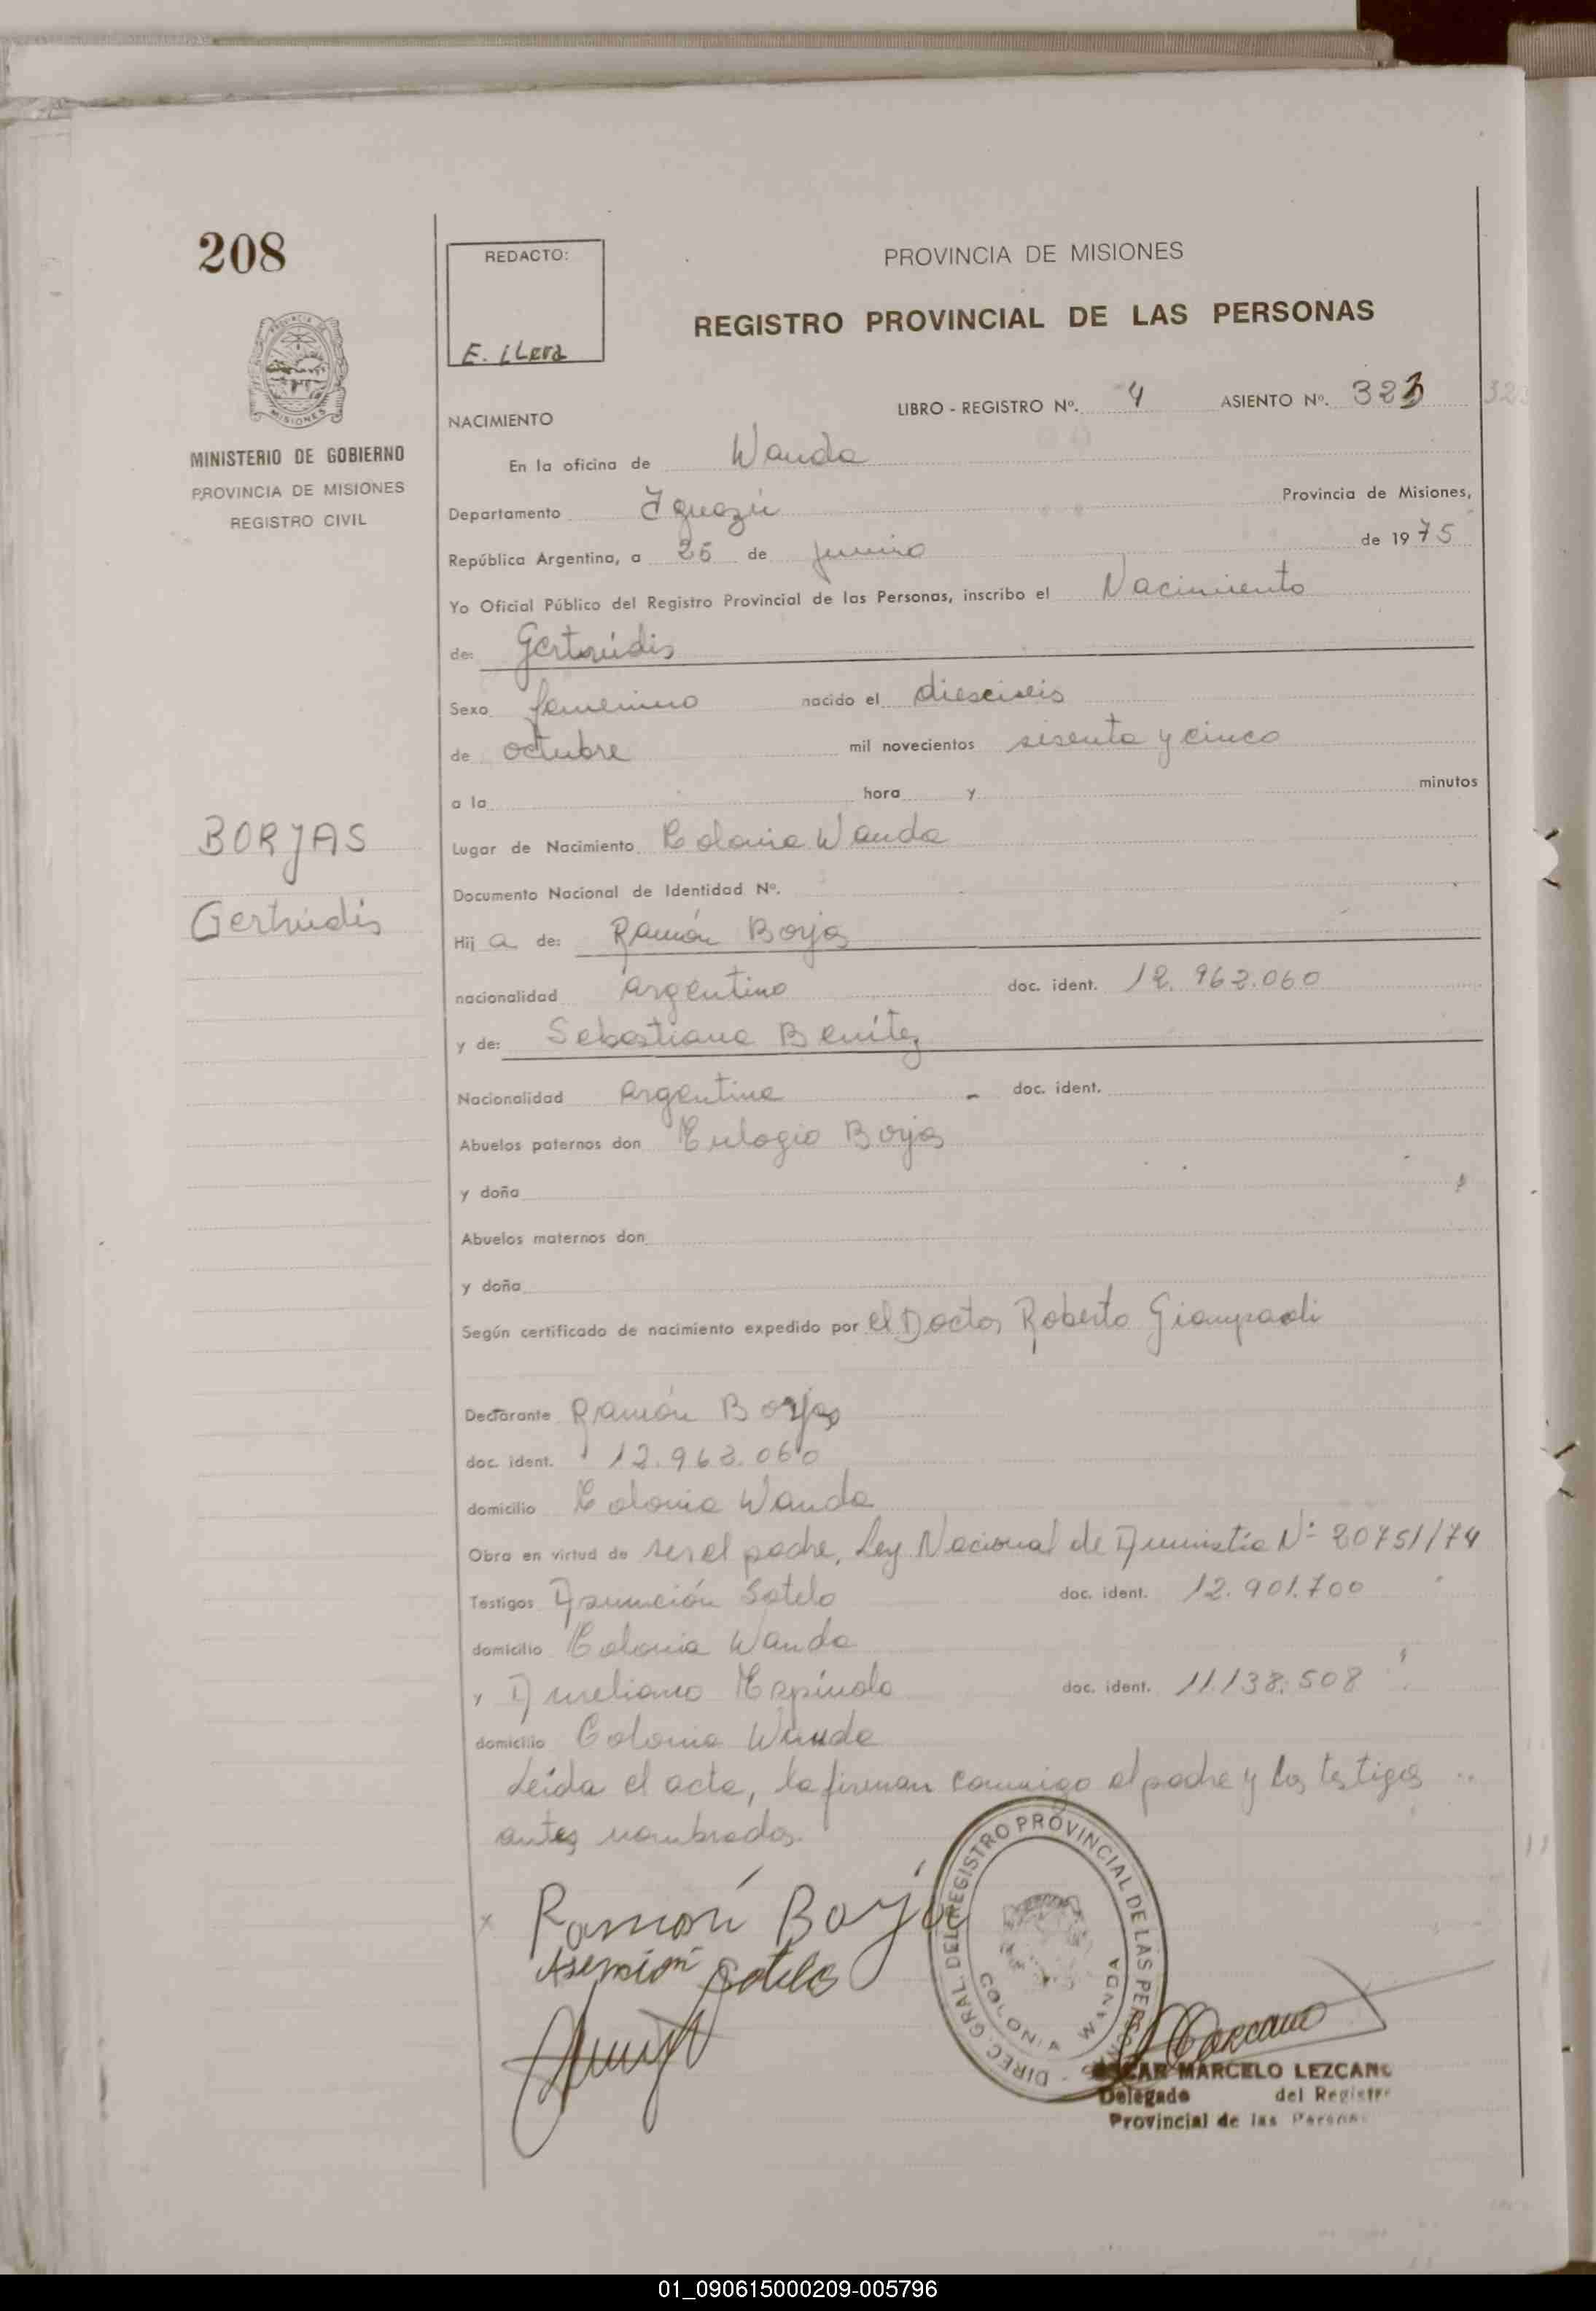 208
REDACTO:
E. LLera
PROVINCIA DE MISIONES
REGISTRO PROVINCIAL DE LAS PERSONAS
MISIONES
MINISTERIO DE GOBIERNO
PROVINCIA DE MISIONES
REGISTRO CIVIL
LIBRO - REGISTRO Nº. 4 ASIENTO Nº. 323
NACIMIENTO
En la oficina de Wanda
Departamento Iguazú Provincia de Misiones,
República Argentina, a 25 de junio de 1975
Yo Oficial Público del Registro Provincial de las Personas, inscribo el Nacimiento
de: Gertrúdis
Sexo femenino nacido el diesciseis
de octubre mil novecientos sesenta y cinco
a la hora y minutos
BORJAS
Lugar de Nacimiento Colonia Wanda
Documento Nacional de Identidad Nº.
Gertrúdis
Hij a de: Ramón Borjas
nacionalidad argentino doc. ident. 12.962.060
y de: Sebastiana Benítez
Nacionalidad argentina - doc. ident.
Abuelos paternos don Eulogio Borjas
y doña
Abuelos maternos don
y doña
Según certificado de nacimiento expedido por el Doctor Roberto Giampaoli
Declarante Ramón Borjas
doc. ident. 12.962.060
domicilio Colonia Wanda
Obra en virtud de ser el padre, Ley Nacional de Amnistía Nº 20751/74
Testigos Asunción Sotelo doc. ident. 12.901.700
domicilio Colonia Wanda
y Aureliano Espíndola doc. ident. 11.138.508
domicilio Colonia Wanda
Leída el acta, la firman conmigo el padre y los testigos
antes nombrados.
Ramón Borja
Asención Sotelo
DIREC. GRAL. DEL REGISTRO PROVINCIAL DE LAS PERSONAS
COLONIA WANDA
OSCAR MARCELO LEZCANO
Delegado del Registro
Provincial de las Personas
01_090615000209-005796